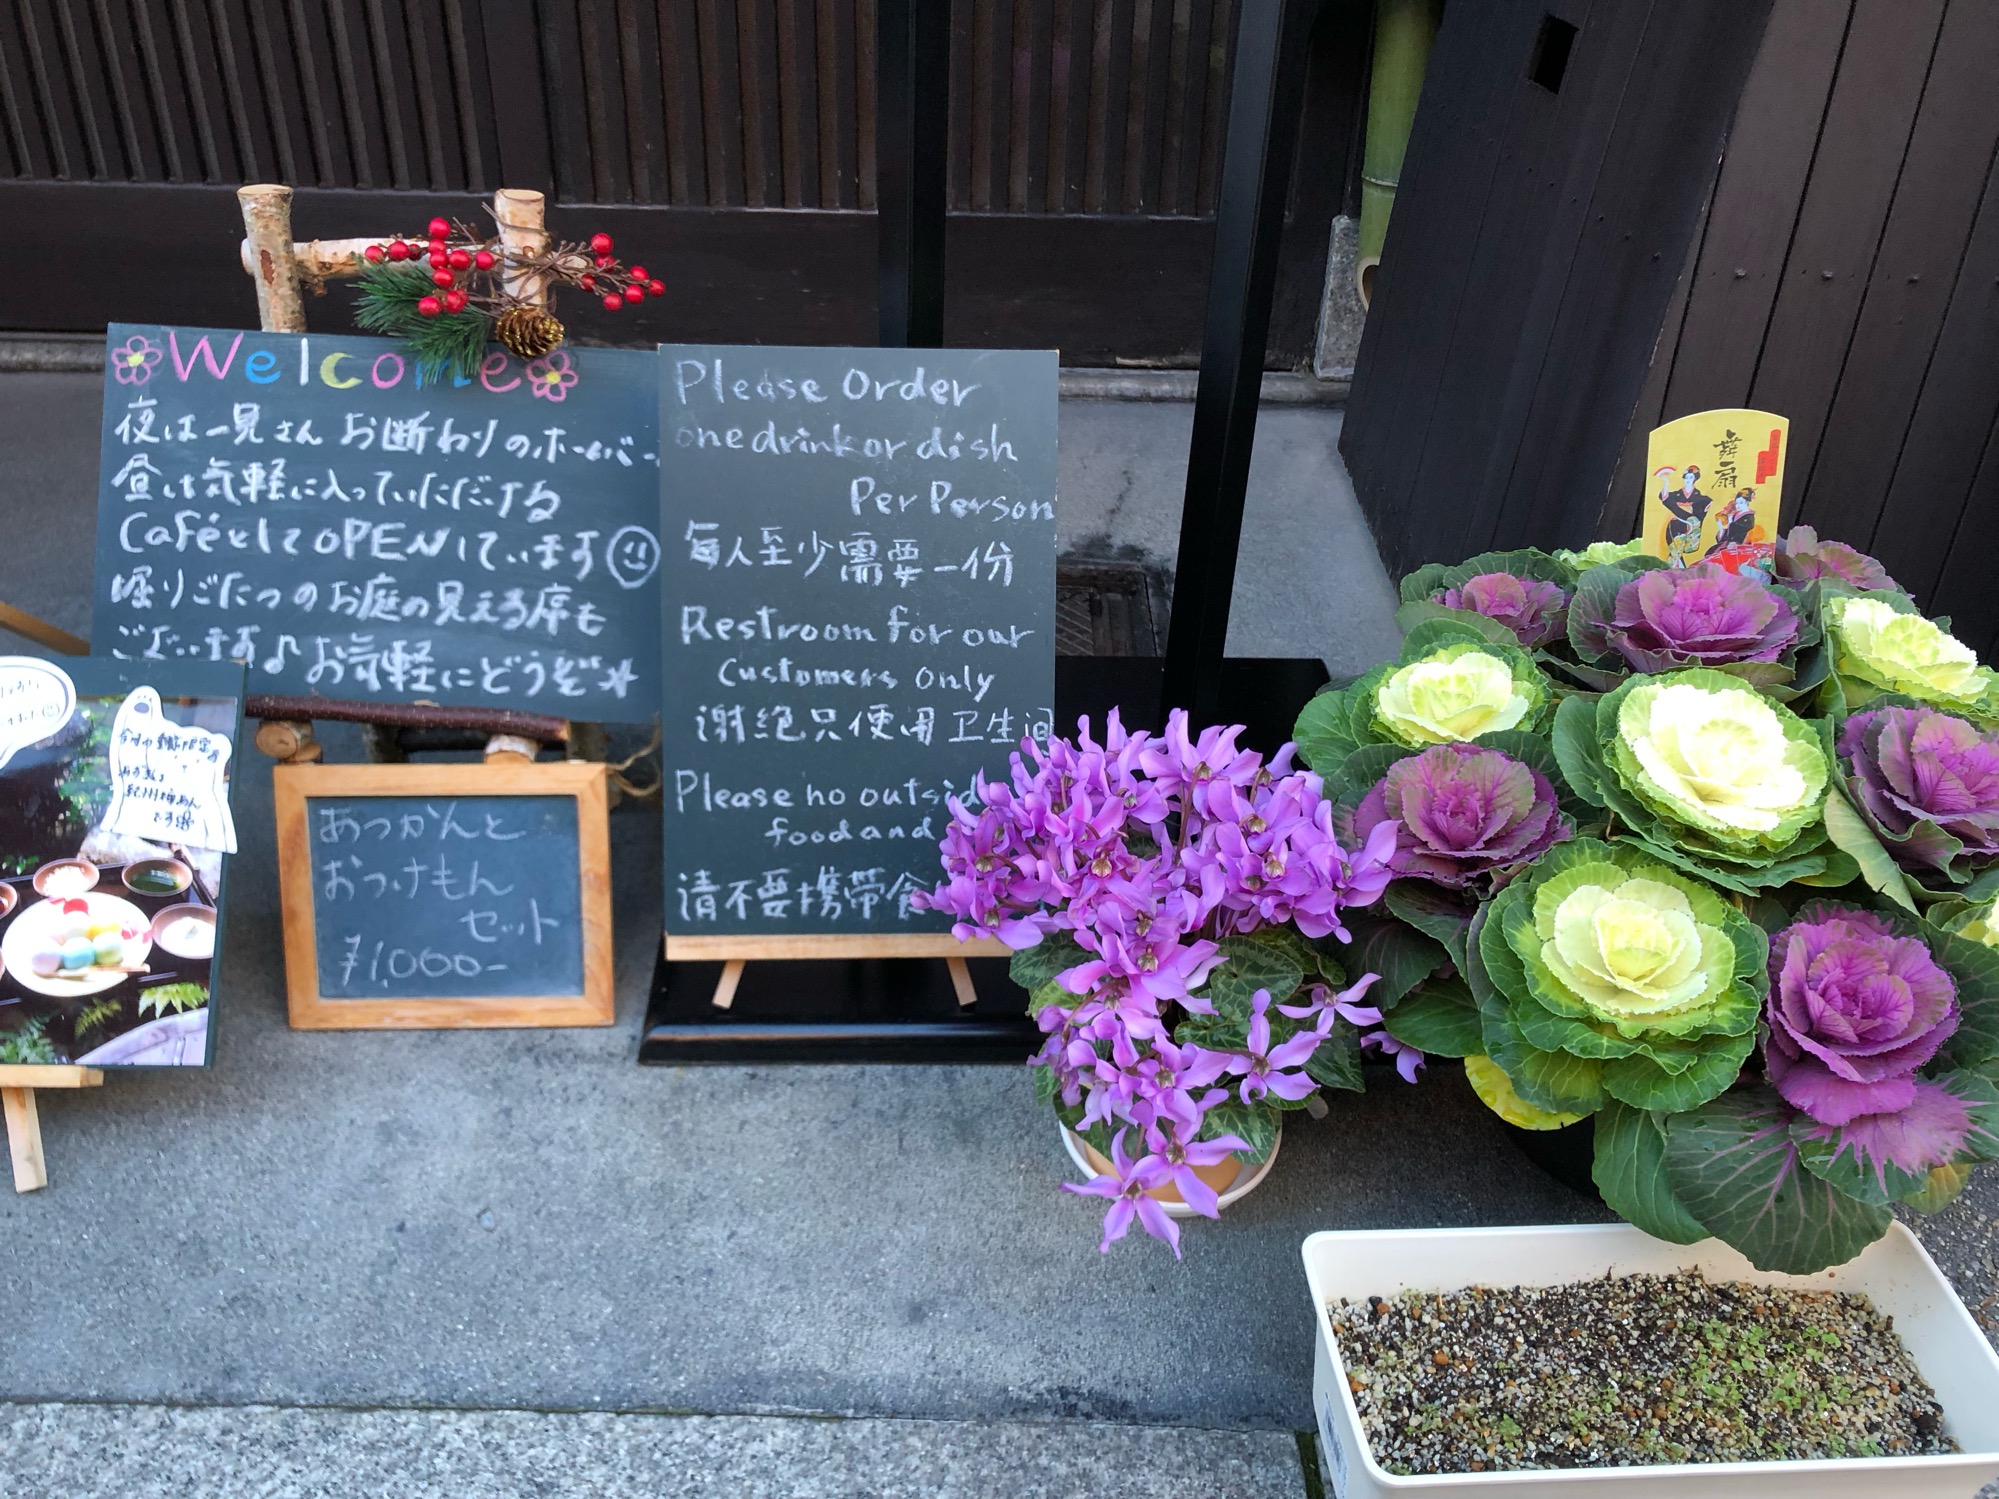 Welcome
夜は一見さんお断わりのホームバー
昼は気軽に入っていただける
CaféとしてOPENしています
堀りごたつのお庭の見える席も
ございます♪お気軽にどうぞ
あつかんと
おつけもん
セット
¥1,000-
Please Order
one drink or dish
Per Person
每人至少需要一份
Restroom for our
Customers Only
谢绝只使用卫生间
Please no outsid
food and
请不要携带食
舞扇
紀州梅あん